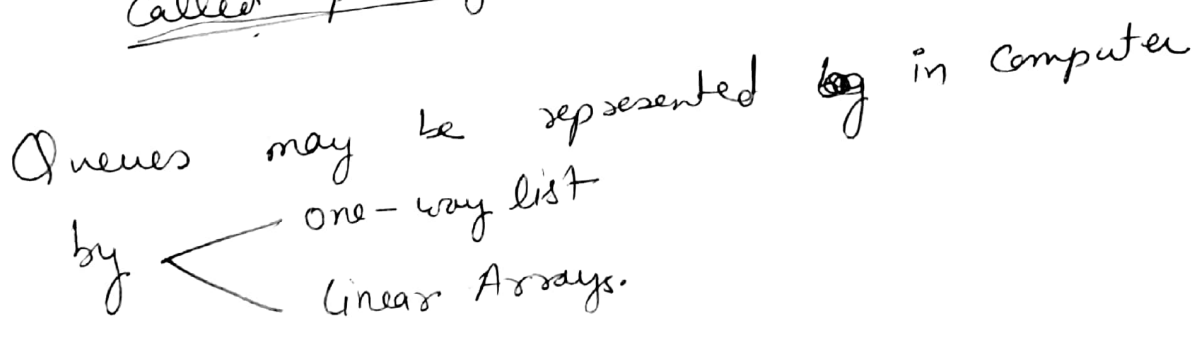 Called
Queues may be represented in Computer
by
one-way list
Linear Arrays.